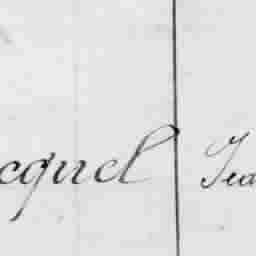 cquel Jea